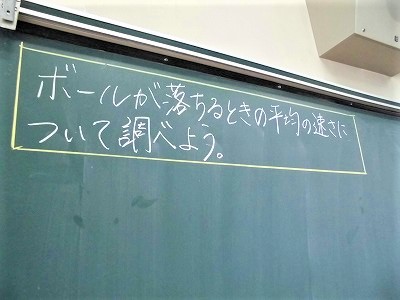 ボールが落ちるときの平均の速さに
ついて調べよう。